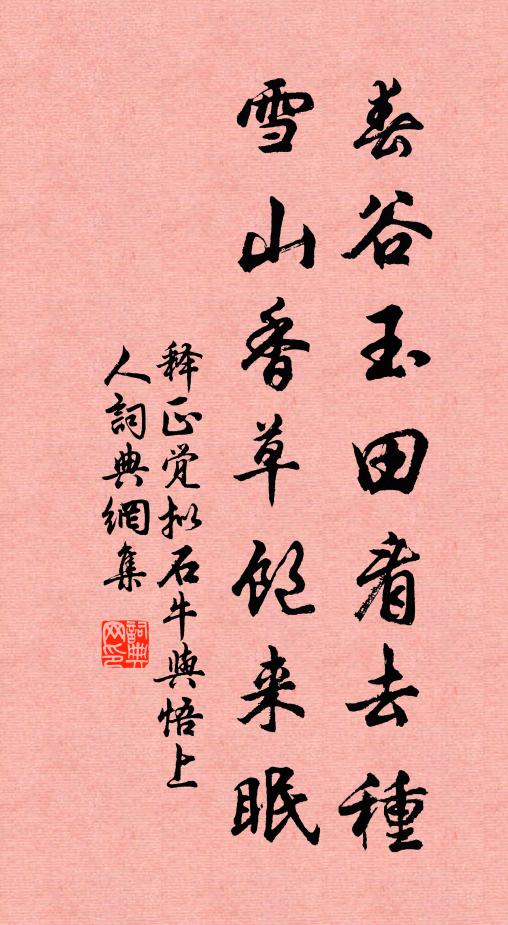 春谷玉田看去種
雪山香草飽来眠
释正觉拟石牛與悟上
人詞典網集
詞典
网印